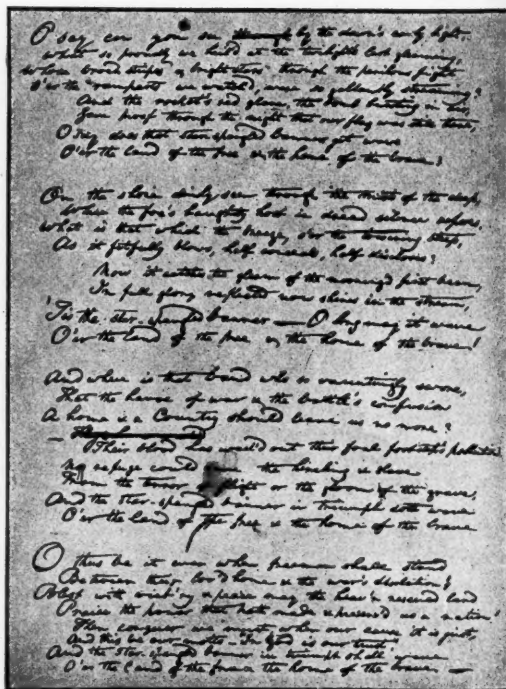 O say can you see ~~through~~ by the dawn's early light,
What so proudly we hail'd at the twilight's last gleaming,
Whose broad stripes & bright stars through the perilous fight
O'er the ramparts we watch'd, were so gallantly streaming?
And the rocket's red glare, the bomb bursting in air,
Gave proof through the night that our flag was still there,
O say does that star spangled banner yet wave
O'er the land of the free & the home of the brave?
On the shore dimly seen through the mists of the deep,
Where the foe's haughty host in dread silence reposes,
What is that which the breeze, o'er the towering steep,
As it fitfully blows, half conceals, half discloses?
Now it catches the gleam of the morning's first beam,
In full glory reflected now shines in the stream,
'Tis the star-spangled banner — O long may it wave
O'er the land of the free & the home of the brave!
And where is that band who so vauntingly swore,
That the havoc of war & the battle's confusion
A home & a Country should leave us no more?
—
Their blood has wash'd out their foul footstep's pollution
No refuge could save the hireling & slave
From the terror of flight or the gloom of the grave,
And the star-spangled banner in triumph doth wave
O'er the land of the free & the home of the brave
O thus be it ever when freemen shall stand
Between their lov'd home & the war's desolation!
Blest with vict'ry & peace may the heav'n rescued land
Praise the power that hath made & preserv'd us a nation!
Then conquer we must, when our cause it is just,
And this be our motto – In God is our trust,
And the star-spangled banner in triumph shall wave
O'er the land of the free & the home of the brave. —